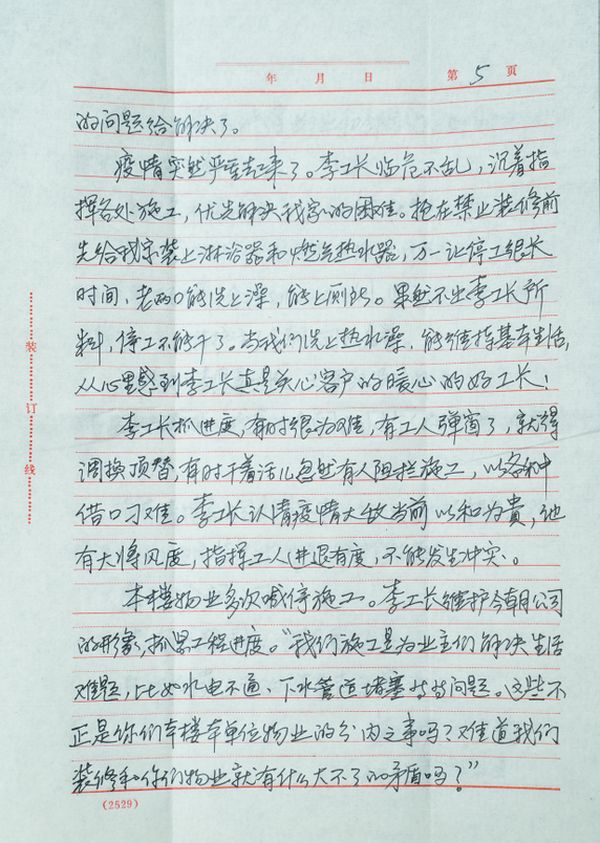 年 月 日 第 5 页
的问题给解决了。
疫情突然严重起来了。李工长临危不乱，沉着指
挥各处施工，优先解决我家的困难。抢在禁止装修前
先给我家装上淋浴器和燃气热水器，万一让停工很长
时间，老两口能洗上澡，能上厕所。果然不出李工长所
料，停工不能干了。当我们洗上热水澡，能维持基本生活，
从心里感到李工长真是关心客户的暖心的好工长！
李工长抓进度，有时很为难，有工人弹窗了，就得
调换顶替，有时干着活儿忽然有人阻拦施工，以各种
借口刁难。李工长认清疫情大敌当前以和为貴，他
有大将风度，指挥工人进退有度，不能发生冲突。
本楼物业多次喊停施工。李工长维护今朝公司
的形象，抓紧工程进度。“我们施工是为业主们解决生活
难题，比如水电不通、下水管道堵塞等等问题。这些不
正是你们本楼本单位物业的分内之事吗？难道我们
装修和你们物业就有什么大不了的矛盾吗？”
装
订
线
(2529)